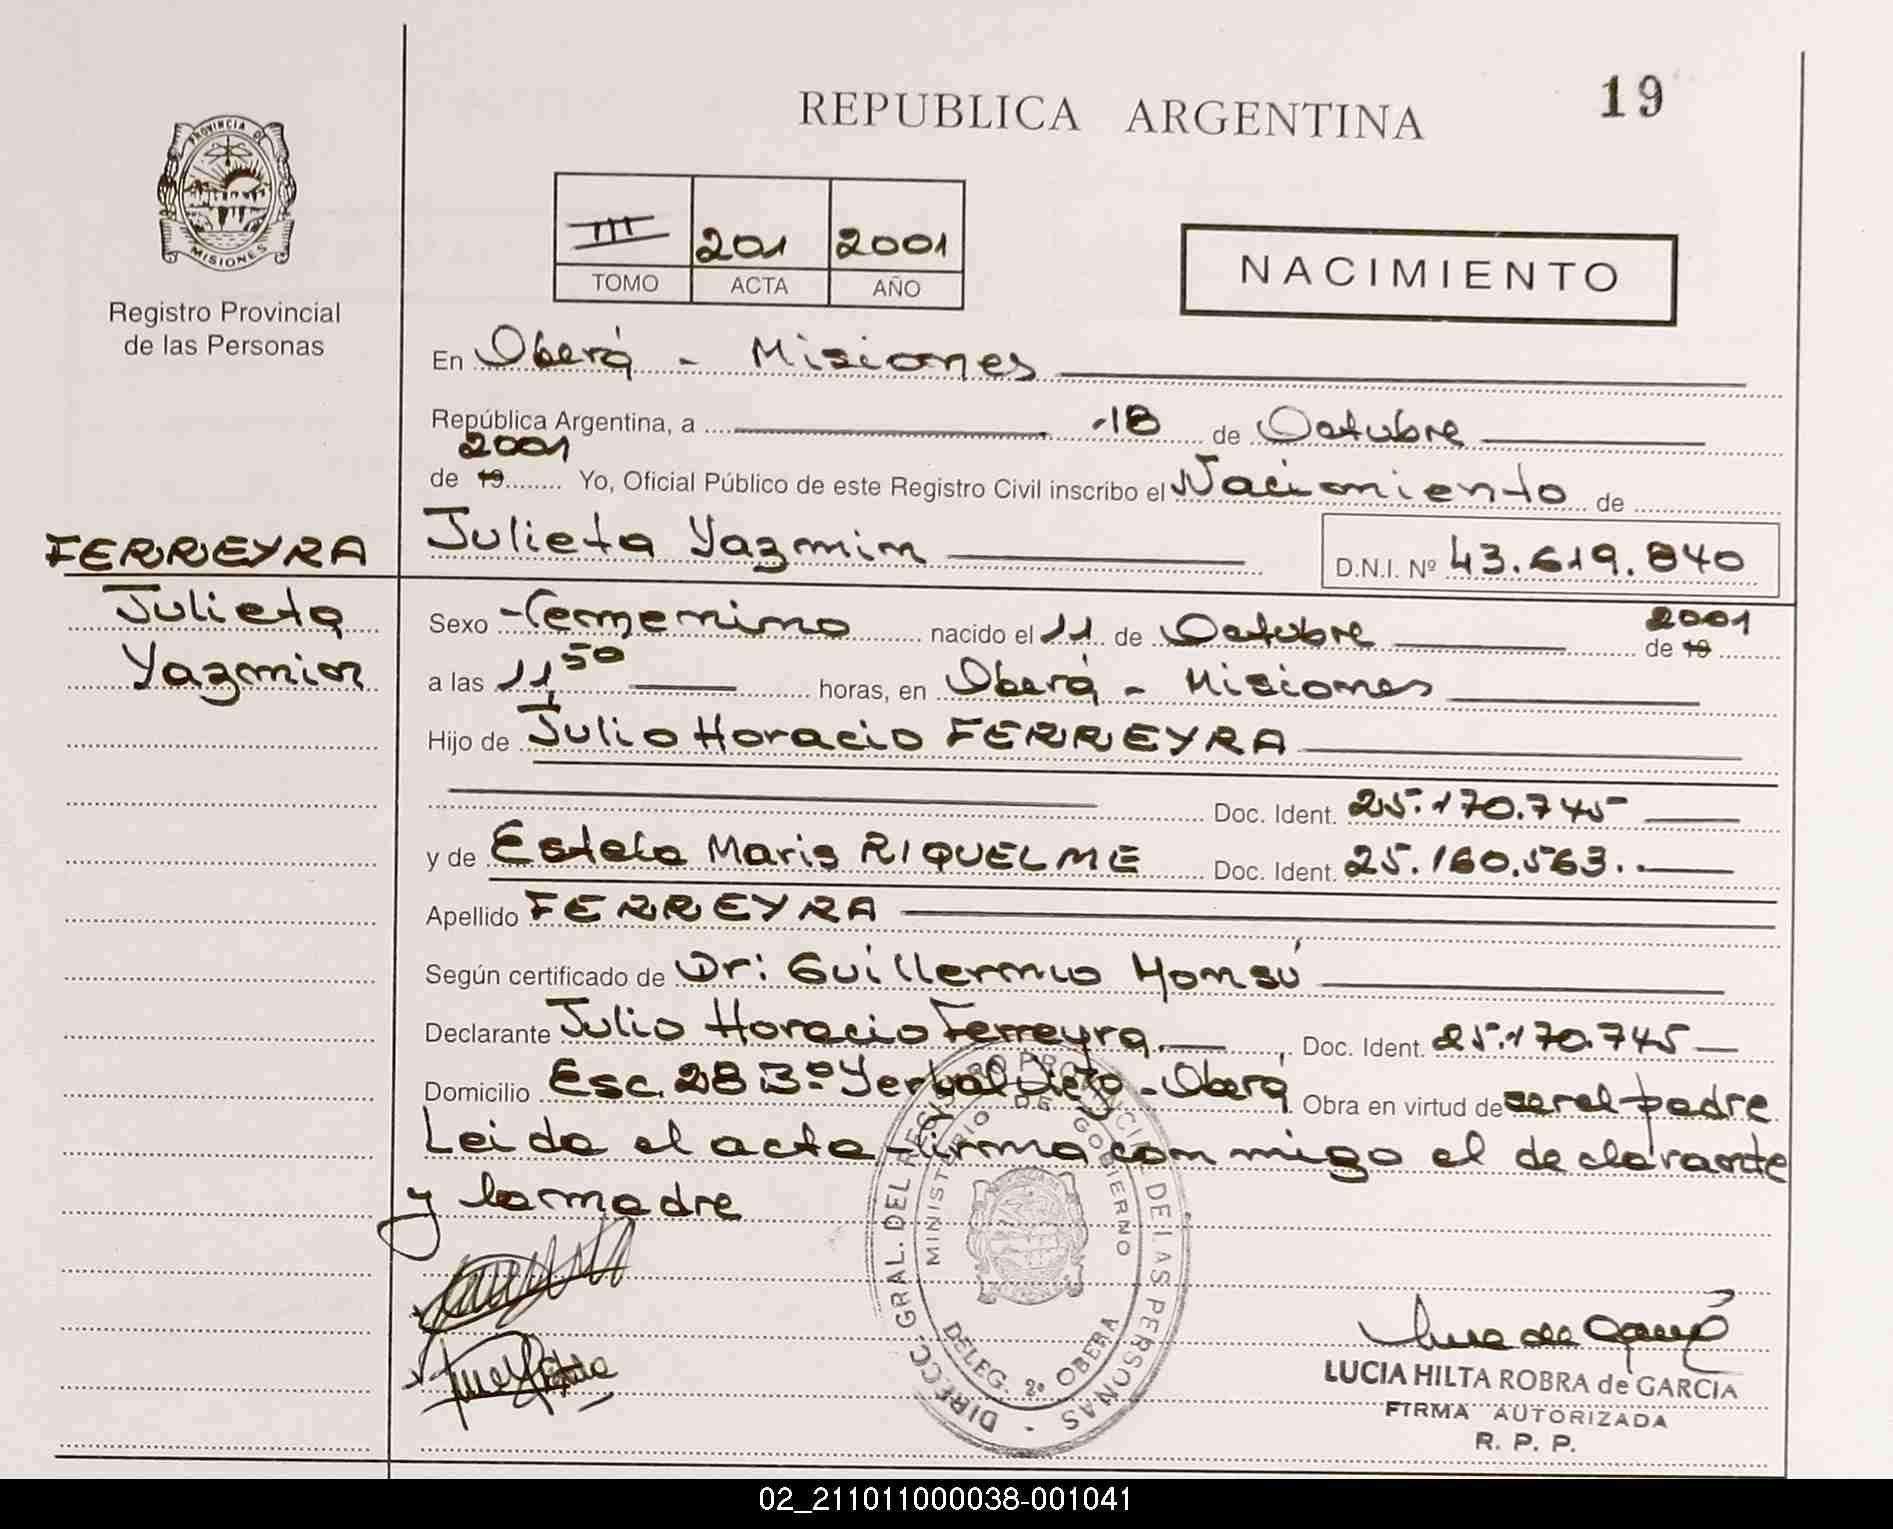 REPUBLICA ARGENTINA
19
PROVINCIA DE
MISIONES
Registro Provincial
de las Personas
III 201 2001
TOMO ACTA AÑO
NACIMIENTO
En Oberá - Misiones
República Argentina, a 18 de Octubre
2001
de 19 Yo, Oficial Público de este Registro Civil inscribo el Nacimiento de
FERREYRA
Julieta
Yazmin
Julieta Yazmin
D.N.I. Nº 43.619.840
Sexo Femenino nacido el 11 de Octubre de 19 2001
a las 11,50 horas, en Oberá - Misiones
Hijo de Julio Horacio FERREYRA
Doc. Ident. 25.170.745
y de Estela Maris RIQUELME Doc. Ident. 25.160.563.
Apellido FERREYRA
Según certificado de Dr: Guillermo Monsú
Declarante Julio Horacio Ferreyra, Doc. Ident. 25.170.745
Domicilio Esc. 283º Yerbal Viejo - Oberá Obra en virtud de ser el padre
Leida el acta firma conmigo el declarante
y la madre
DIRECC. GRAL. DEL REGISTRO PROVINCIAL DE LAS PERSONAS
MINISTERIO DE GOBIERNO
DELEG. 2º OBERA
LUCIA HILTA ROBRA de GARCIA
FIRMA AUTORIZADA
R. P. P.
02_211011000038-001041